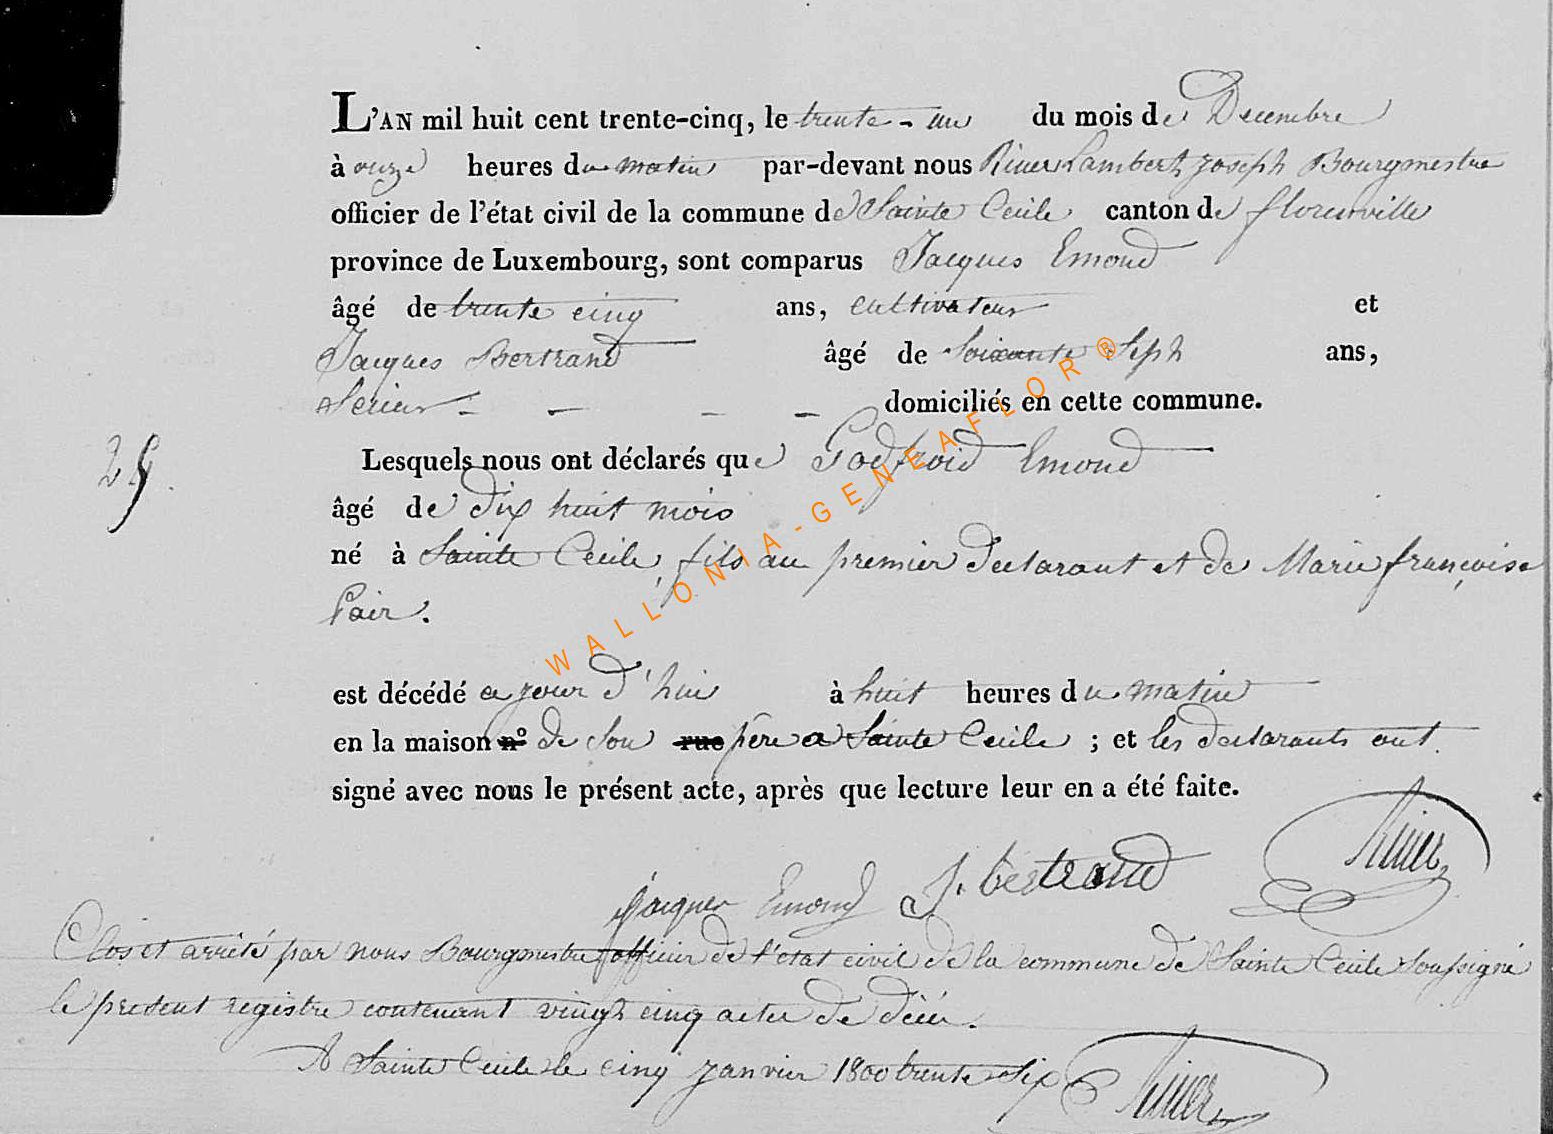 L'AN mil huit cent trente-cinq, le trente-un du mois de Decembre
à onze heures du matin par-devant nous Riner Lambert Joseph Bourgmestre
officier de l'état civil de la commune de Sainte Cecile canton de florenville
province de Luxembourg, sont comparus Jacques Emond
âgé de trente cinq ans, cultivateur et
Jacques Bertrand âgé de Soixante Seph ans,
domiciliés en cette commune.
Lesquels nous ont déclarés que Godfroid Emond
25
âgé de dix huit mois
né à Sainte Cecile, fils au premier declarant et de Marie françoise
Pair.
est décédé a jour d'hui à huit heures du matin
en la maison n° de Son rue père a Sainte Cecile ; et les declarants ont
signé avec nous le présent acte, après que lecture leur en a été faite.
Jacques Emond J. bertrand Riner
Clos et arrêté par nous Bourgmestre officier de l'état civil de la commune de Sainte Cecile Soussigné
le present registre contenant vingt cinq actes de décès.
A Sainte Cecile le cinq janvier 1800 trente six Riner
WALLONIA-GENEAFLOR ®